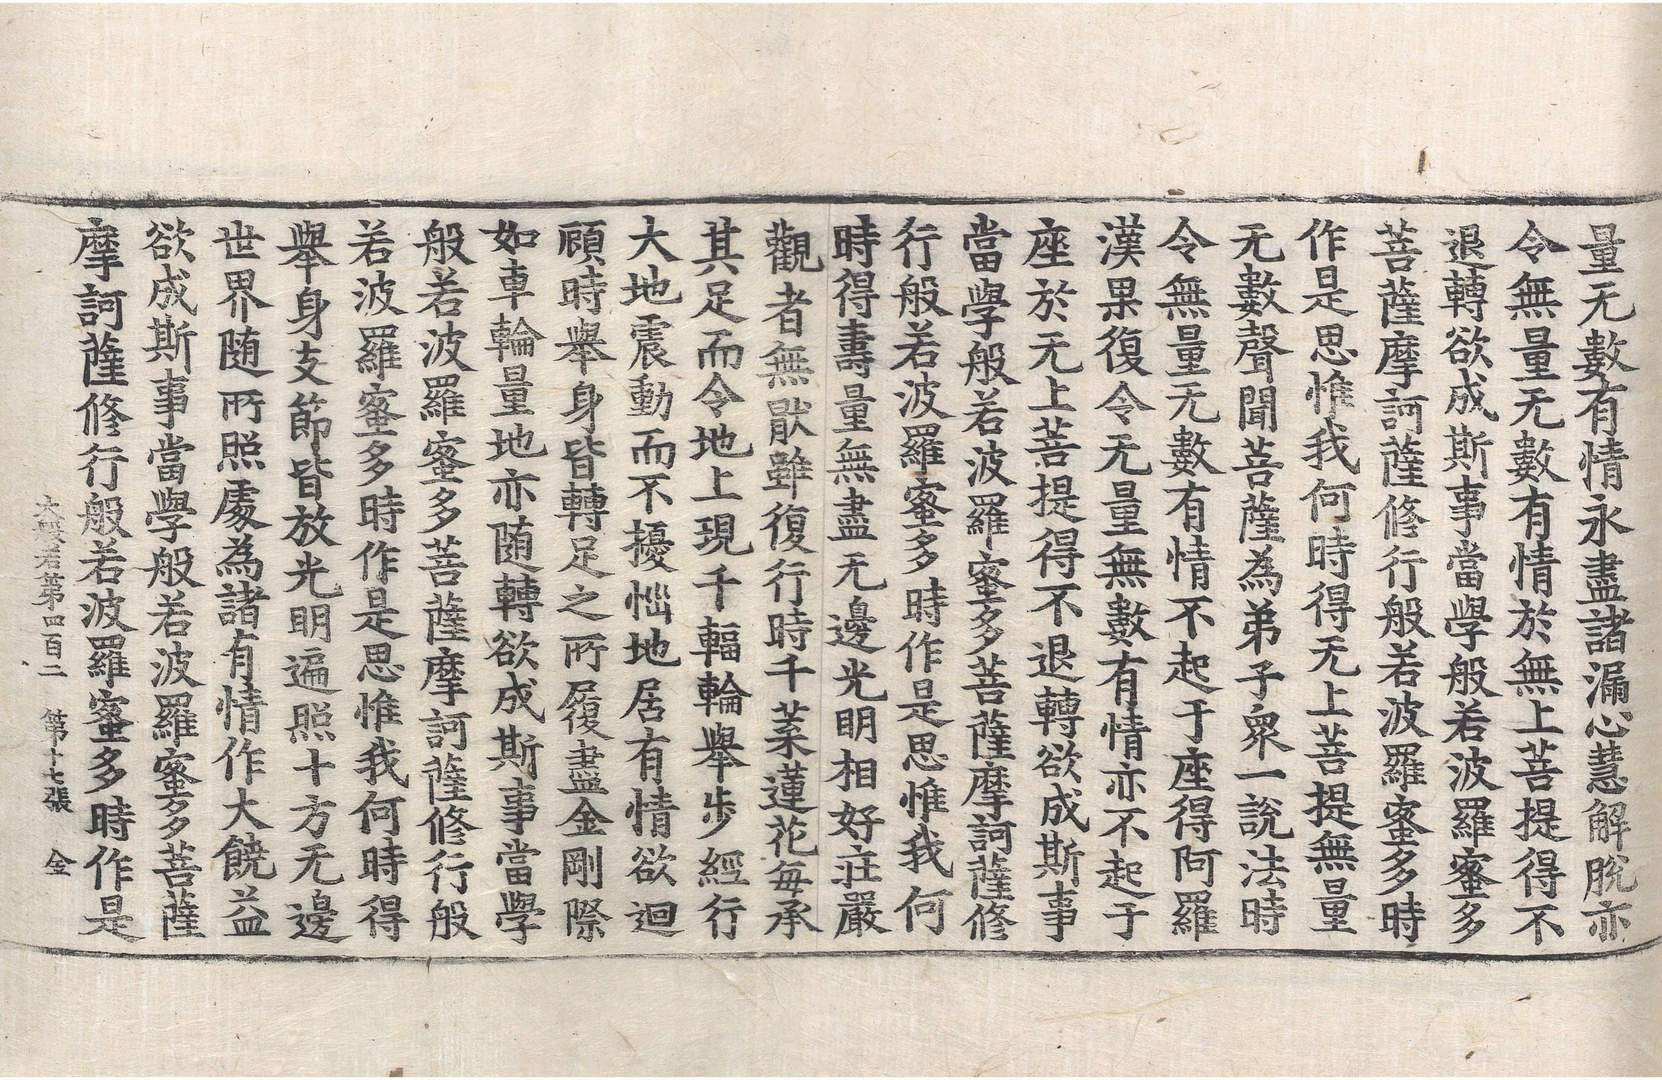 量无數有情永盡諸漏心慧解脫亦
令無量无數有情於無上菩提得不
退轉欲成斯事當學般若波羅蜜多
菩薩摩訶薩修行般若波羅蜜多時
作是思惟我何時得无上菩提無量
无數聲聞菩薩為弟子衆一說法時
令無量无數有情不起于座得阿羅
漢果復令无量無數有情亦不起于
座於无上菩提得不退轉欲成斯事
當學般若波羅蜜多菩薩摩訶薩修
行般若波羅蜜多時作是思惟我何
時得壽量無盡无邊光明相好莊嚴
觀者無猒雖復行時千葉蓮花每承
其足而令地上現千輻輪舉步經行
大地震動而不擾惱地居有情欲迴
顧時舉身皆轉足之所履盡金剛際
如車輪量地亦随轉欲成斯事當學
般若波羅蜜多菩薩摩訶薩修行般
若波羅蜜多時作是思惟我何時得
舉身支節皆放光明遍照十方无邊
世界随所照處為諸有情作大饒益
欲成斯事當學般若波羅蜜多菩薩
摩訶薩修行般若波羅蜜多時作是
大般若第四百二 第十七張 金